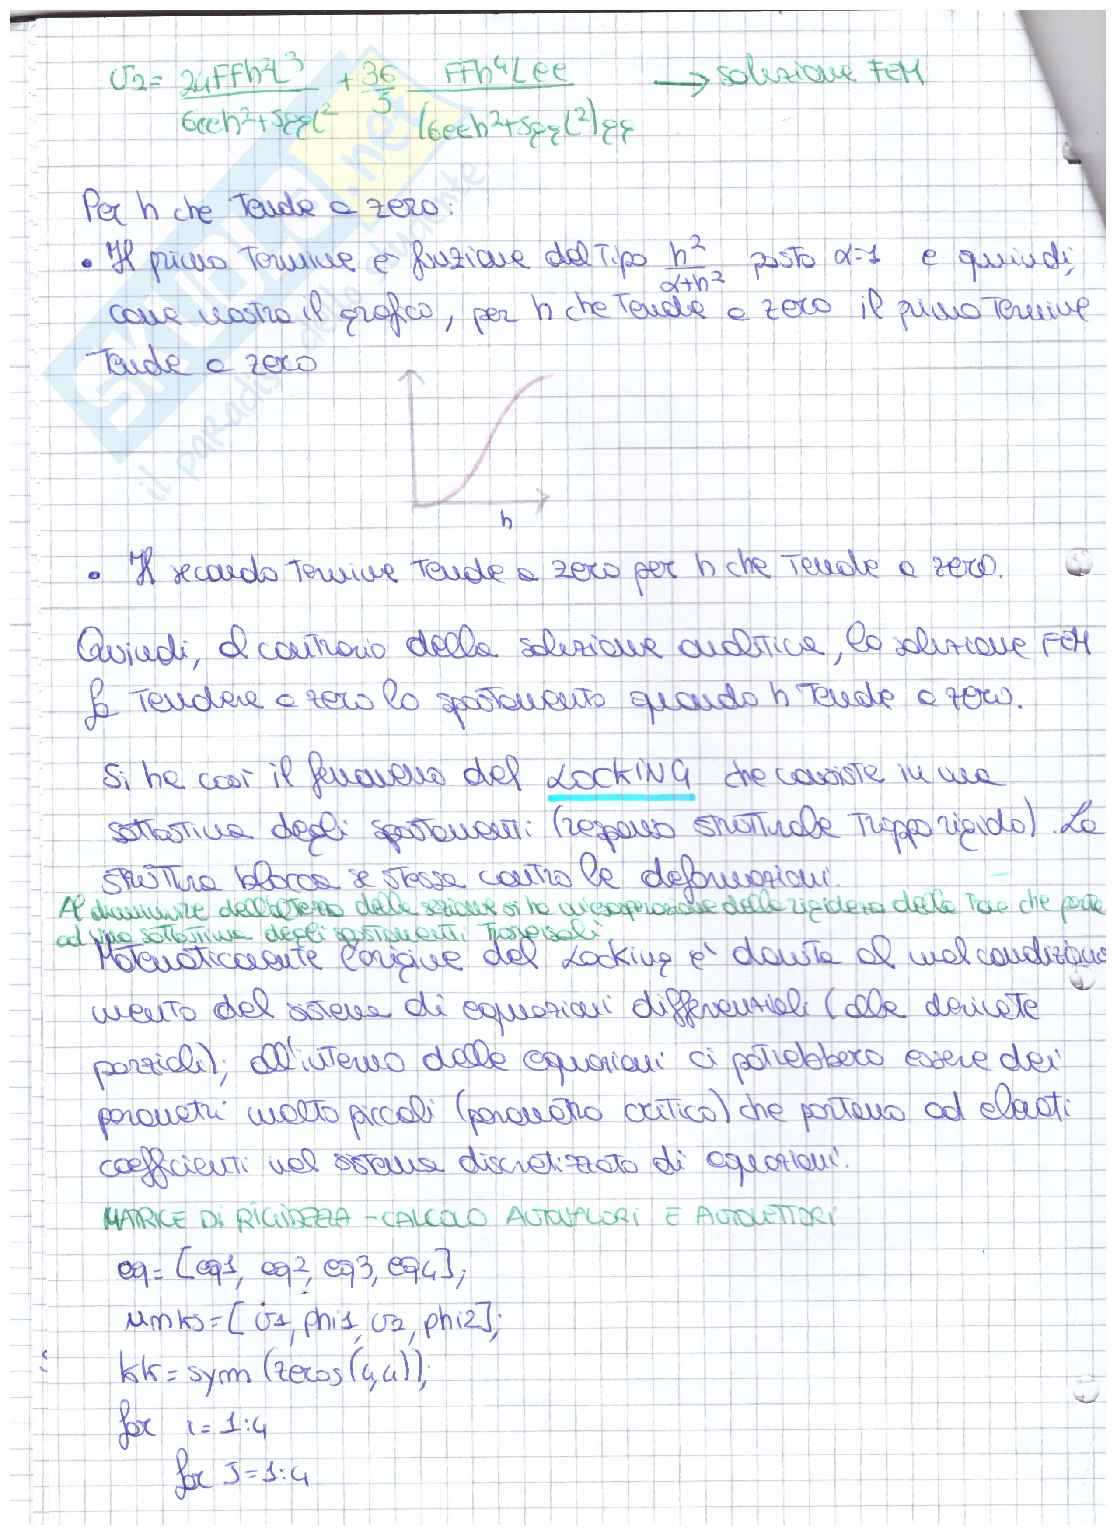 v2 = 24FFh²L³ / (6eeh²+5ggL²) + 36/5 FFh⁴Lee / ((6eeh²+5ggL²)gg) → soluzione FEM
Per h che tende a zero:
• Il primo termine è funzione del tipo h²/(α+h²) posto α=1 e quindi,
come mostra il grafico, per h che tende a zero il primo termine
tende a zero
h
• Il secondo termine tende a zero per h che tende a zero.
Quindi, al contrario della soluzione analitica, la soluzione FEM
fa tendere a zero lo spostamento quando h tende a zero.
Si ha così il fenomeno del LOCKING che consiste in una
sottostima degli spostamenti (risposta strutturale troppo rigida). La
struttura blocca se stessa contro le deformazioni.
Al diminuire dell'altezza della sezione si ha un'esasperazione della rigidezza della trave che porta
ad una sottostima degli spostamenti trasversali
Matematicamente l'origine del Locking è dovuta al mal condiziona
mento del sistema di equazioni differenziali (alle derivate
parziali); all'interno delle equazioni ci potrebbero essere dei
parametri molto piccoli (parametro critico) che portano ad elevati
coefficienti nel sistema discretizzato di equazioni.
MATRICE DI RIGIDEZZA - CALCOLO AUTOVALORI E AUTOVETTORI
eq = [eq1, eq2, eq3, eq4];
unks = [v1, phi1, v2, phi2];
kk = sym(zeros(4,4));
for i = 1:4
for J = 1:4
SKUOLA.net
il paradiso dello studente